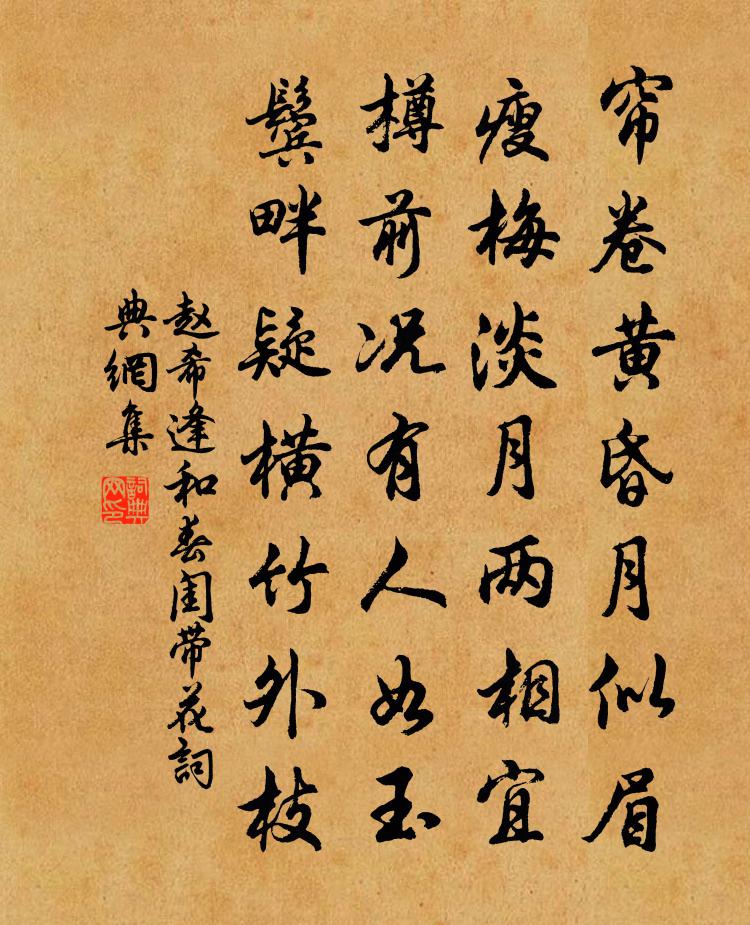 帘卷黄昏月似眉
瘦梅淡月两相宜
樽前况有人如玉
鬓畔疑横竹外枝
赵希逢和春闺带花詞
典網集
詞典网印